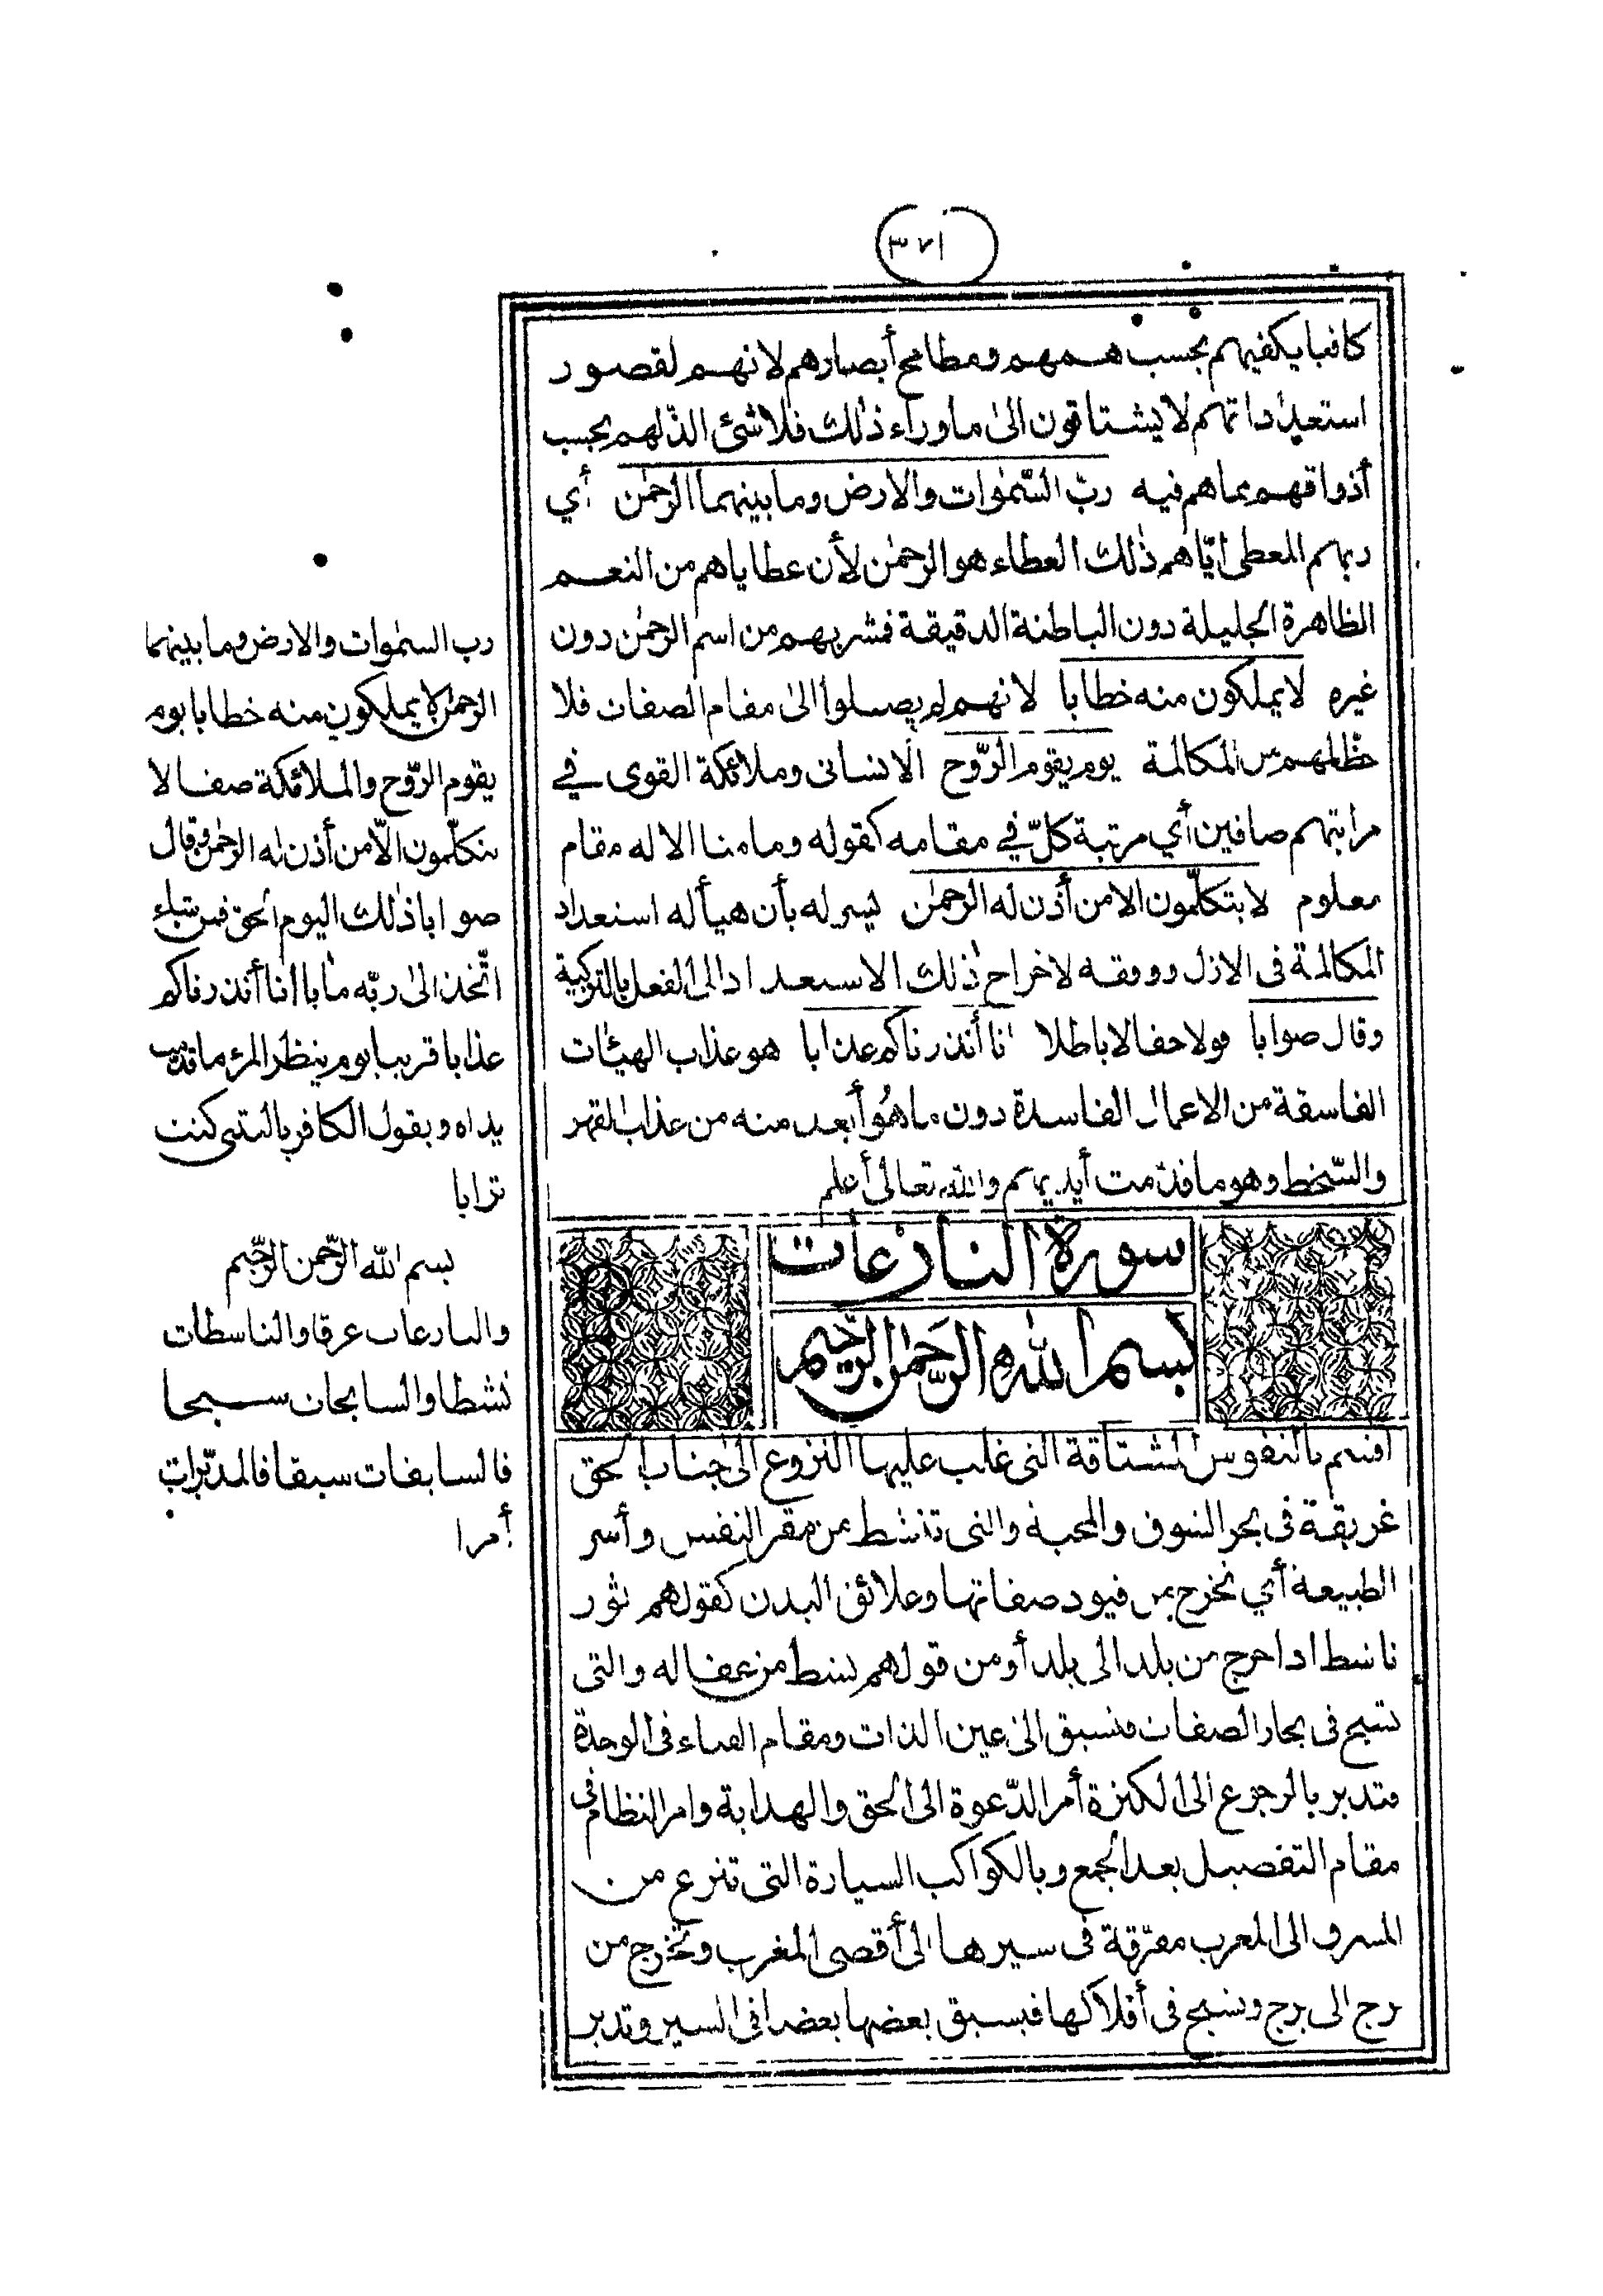 ٣٧١
كافيا يكفيهم بحسب هممهم ومطامح أبصارهم لانهم لقصور
استعداداتهم لا يشتاقون الى ما وراء ذلك فلا شئ الذ لهم بحسب
أذواقهم مما هم فيه رب السموات والارض وما بينهما الرحمن أي
ربهم المعطى اياهم ذلك العطاء هو الرحمن لأن عطاياهم من النعم
الظاهرة الجليلة دون الباطنة الدقيقة فمشربهم من اسم الرحمن دون
غيره لا يملكون منه خطابا لانهم لم يصلوا الى مقام الصفات فلا
حظ لهم من المكالمة يوم يقوم الروح الانسانى وملائكة القوى في
مراتبهم صافين أي مرتبة كل في مقامه كقوله وما منا الا له مقام
معلوم لا يتكلمون الا من أذن له الرحمن يسر له بأن هيأ له استعداد
المكالمة فى الازل ووفقه لاخراج ذلك الاستعداد الى الفعل بالتزكية
وقال صوابا قولا حقا لا باطلا انا أنذرناكم عذابا هو عذاب الهيئات
الفاسقة من الاعمال الفاسدة دون ما هو أبعد منه من عذاب القهر
والسخط وهو ما قدمت أيديهم والله تعالى أعلم
سورة النازعات
بسم الله الرحمن الرحيم
أقسم بالنفوس المشتاقة التى غلب عليها النزوع الى جناب الحق
غريقة فى بحر الشوق والمحبة والتى تنشط من مقر النفس وأسر
الطبيعة أي تخرج من قيود صفاتها وعلائق البدن كقولهم ثور
ناشط اذا خرج من بلد الى بلد أو من قولهم نشط من عقاله والتى
تسبح فى بحار الصفات فتسبق الى عين الذات ومقام الفناء فى الوحدة
فتدبر بالرجوع الى الكثرة أمر الدعوة الى الحق والهداية وامر النظام فى
مقام التفصيل بعد الجمع وبالكواكب السيارة التى تنزع من
المشرق الى المغرب مغرقة فى سيرها الى أقصى المغرب وتخرج من
برج الى برج وتسبح فى أفلاكها فيسبق بعضها بعضا فى السير وتدبر
رب السموات والارض وما بينهما
الرحمن لا يملكون منه خطابا يوم
يقوم الروح والملائكة صفا لا
يتكلمون الا من أذن له الرحمن وقال
صوابا ذلك اليوم الحق فمن شاء
اتخذ الى ربه مابا انا أنذرناكم
عذابا قريبا يوم ينظر المرء ما قدمت
يداه ويقول الكافر ياليتنى كنت
ترابا
بسم الله الرحمن الرحيم
والنازعات غرقا والناشطات
نشطا والسابحات سبحا
فالسابقات سبقا فالمدبرات
أمرا